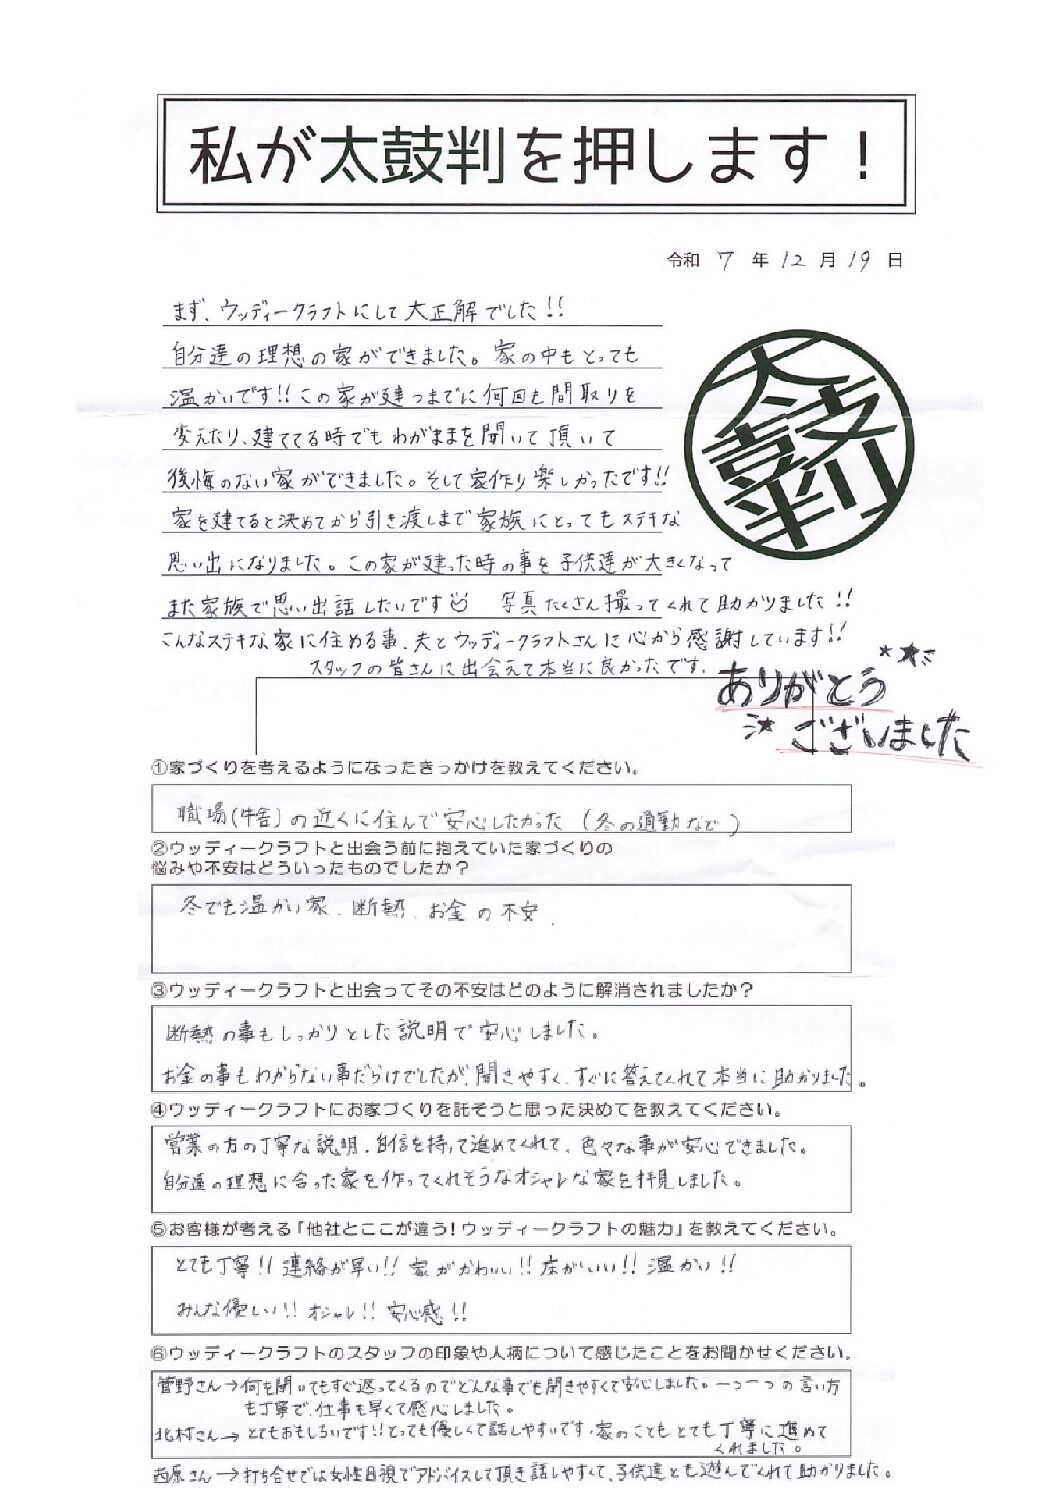 私が太鼓判を押します！
令和 7 年 12 月 19 日
まず、ウッディークラフトにして大正解でした!!
自分達の理想の家ができました。家の中もとっても
温かいです!!この家が建つまでに何回も間取りを
変えたり、建ててる時でもわがままを聞いて頂いて
後悔のない家ができました。そして家作り楽しかったです!!
家を建てると決めてから引き渡しまで家族にとってもステキな
思い出になりました。この家が建った時の事を子供達が大きくなって
また家族で思い出話したいです 写真たくさん撮ってくれて助かりました!!
こんなステキな家に住める事、夫とウッディークラフトさんに心から感謝しています!!
スタッフの皆さんに出会えて本当に良かったです。
太鼓判
ありがとう
ございました
①家づくりを考えるようになったきっかけを教えてください。
職場(牛舎)の近くに住んで安心したかった (冬の通勤など)
②ウッディークラフトと出会う前に抱えていた家づくりの
悩みや不安はどういったものでしたか？
冬でも温かい家、断熱、お金の不安、
③ウッディークラフトと出会ってその不安はどのように解消されましたか？
断熱の事もしっかりとした説明で安心しました。
お金の事もわからない事だらけでしたが、聞きやすく、すぐに答えてくれて本当に助かりました。
④ウッディークラフトにお家づくりを託そうと思った決めてを教えてください。
営業の方の丁寧な説明、自信を持って進めてくれて、色々な事が安心できました。
自分達の理想に合った家を作ってくれそうなオシャレな家を拝見しました。
⑤お客様が考える「他社とここが違う！ウッディークラフトの魅力」を教えてください。
とても丁寧!! 連絡が早い!! 家がかわいい!! 床がいい!! 温かい!!
みんな優しい!! オシャレ!! 安心感!!
⑥ウッディークラフトのスタッフの印象や人柄について感じたことをお聞かせください。
菅野さん→何を聞いてもすぐ返ってくるのでどんな事でも聞きやすくて安心しました。一つ一つの言い方
も丁寧で、仕事も早くて感心しました。
北村さん→とてもおもしろいです!!とっても優しくて話しやすいです。家のこともとても丁寧に進めて
くれました。
西原さん→打ち合せでは女性目視でアドバイスして頂き話しやすくて、子供達とも遊んでくれて助かりました。